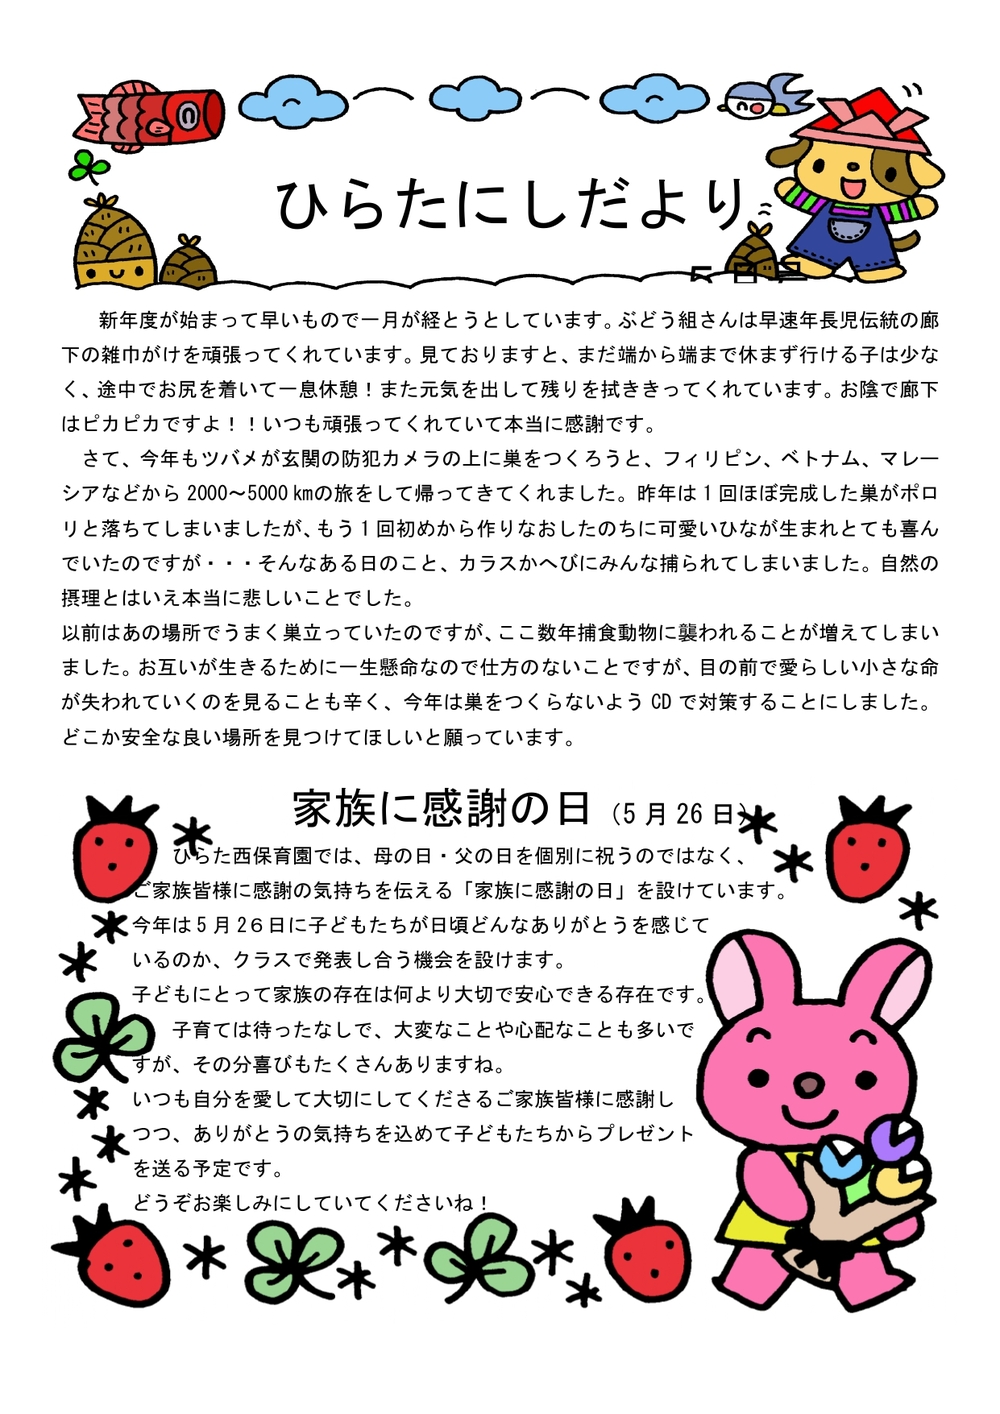 ひらたにしだより
新年度が始まって早いもので一月が経とうとしています。ぶどう組さんは早速年長児伝統の廊
下の雑巾がけを頑張ってくれています。見ておりますと、まだ端から端まで休まず行ける子は少な
く、途中でお尻を着いて一息休憩！また元気を出して残りを拭ききってくれています。お陰で廊下
はピカピカですよ！！いつも頑張ってくれていて本当に感謝です。
さて、今年もツバメが玄関の防犯カメラの上に巣をつくろうと、フィリピン、ベトナム、マレー
シアなどから 2000～5000 kmの旅をして帰ってきてくれました。昨年は 1 回ほぼ完成した巣がポロ
リと落ちてしまいましたが、もう 1 回初めから作りなおしたのちに可愛いひなが生まれとても喜ん
でいたのですが・・・そんなある日のこと、カラスかへびにみんな捕られてしまいました。自然の
摂理とはいえ本当に悲しいことでした。
以前はあの場所でうまく巣立っていたのですが、ここ数年捕食動物に襲われることが増えてしまい
ました。お互いが生きるために一生懸命なので仕方のないことですが、目の前で愛らしい小さな命
が失われていくのを見ることも辛く、今年は巣をつくらないよう CD で対策することにしました。
どこか安全な良い場所を見つけてほしいと願っています。
家族に感謝の日（5 月 26 日）
ひらた西保育園では、母の日・父の日を個別に祝うのではなく、
ご家族皆様に感謝の気持ちを伝える「家族に感謝の日」を設けています。
今年は 5 月 2６日に子どもたちが日頃どんなありがとうを感じて
いるのか、クラスで発表し合う機会を設けます。
子どもにとって家族の存在は何より大切で安心できる存在です。
子育ては待ったなしで、大変なことや心配なことも多いで
すが、その分喜びもたくさんありますね。
いつも自分を愛して大切にしてくださるご家族皆様に感謝し
つつ、ありがとうの気持ちを込めて子どもたちからプレゼント
を送る予定です。
どうぞお楽しみにしていてくださいね！